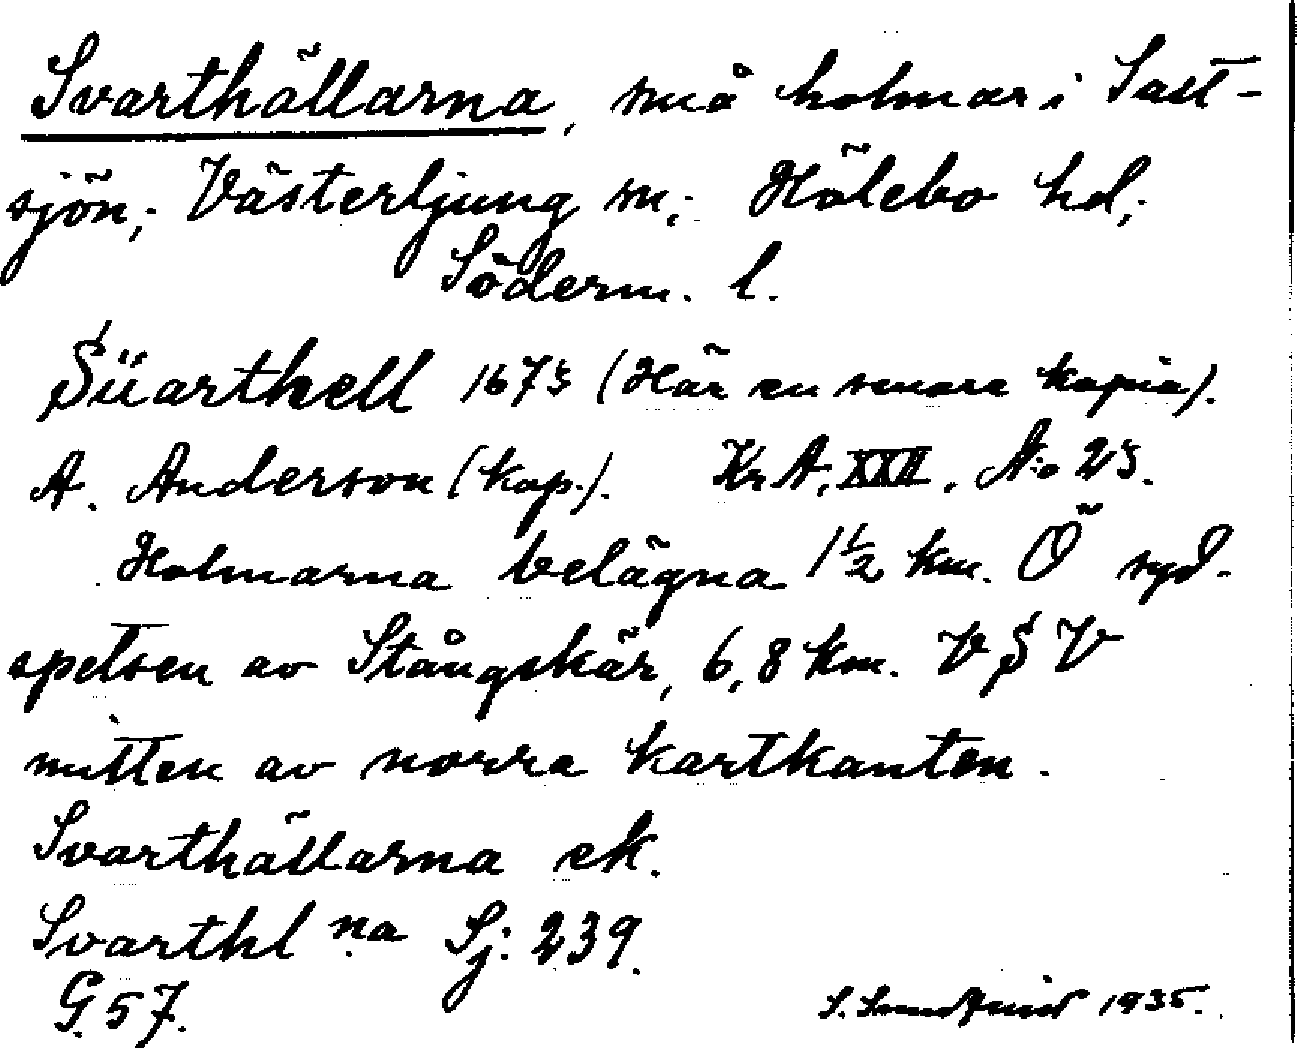 Svarthällarna, små holmar i Salt-
sjön; Västerljung sn; Hölebo hd;
Söderm. l.
Süarthell 1673 (Här en senare kopia).
A. Anderson (kop.). Kr. A. XXII. No 23.
Holmarna belägna 1 1/2 km. Ö syd-
spetsen av Stångskär, 6,8 km. V S V
mitten av norra kartkanten.
Svarthällarna ek.
Svarthl na Sj: 239.
G. 57. S. 1935.